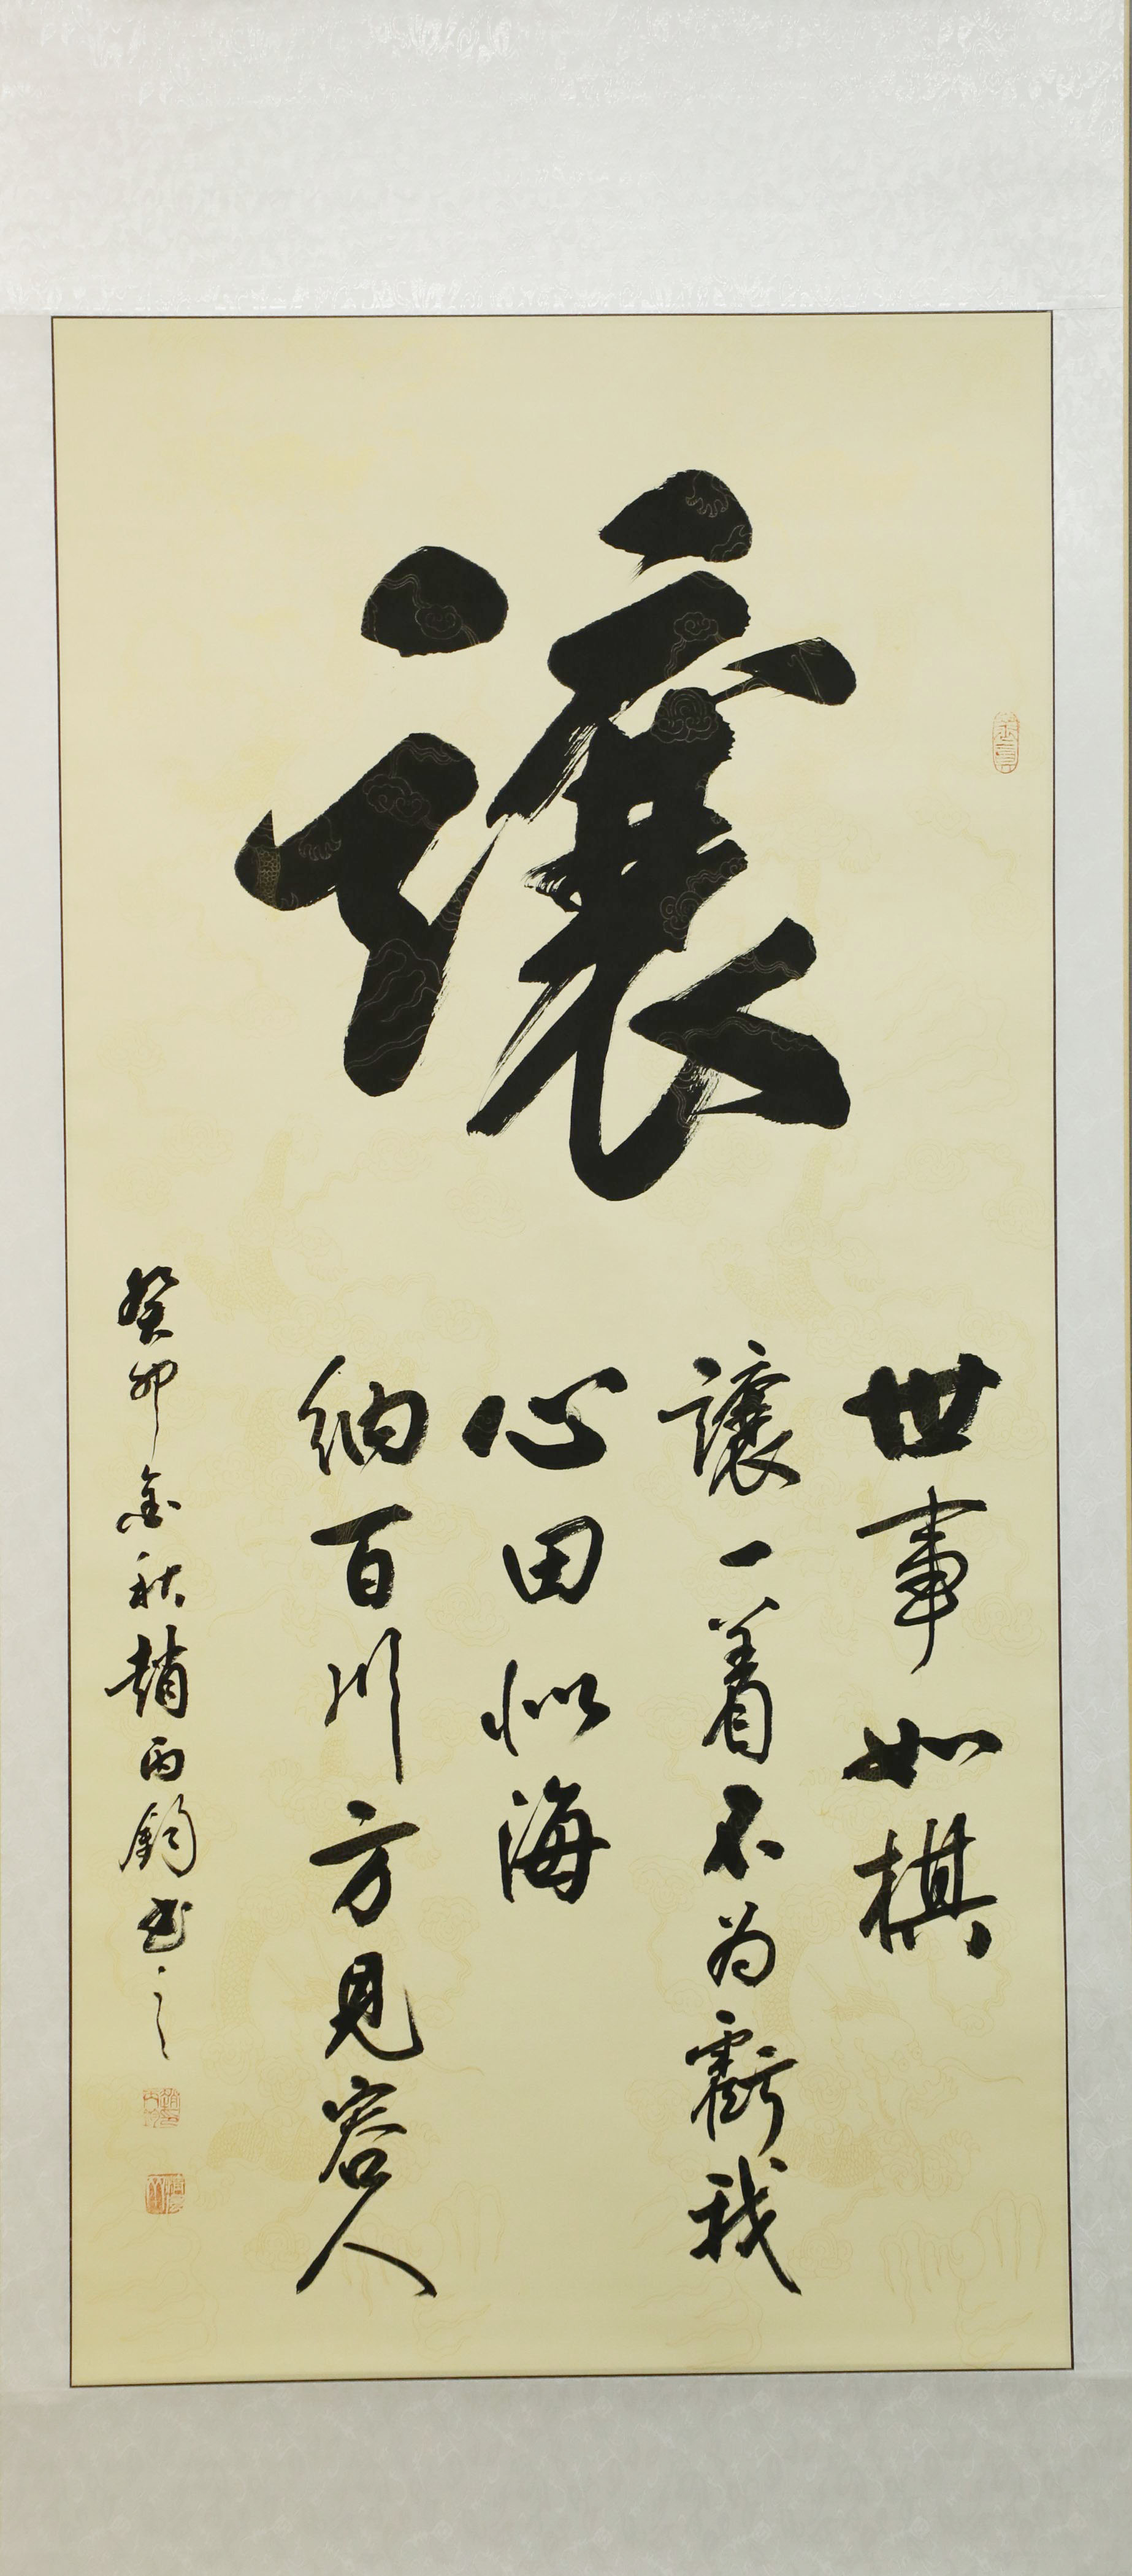 讓
世事如棋
讓一着不为虧我
心田似海
納百川方見容人
癸卯金秋趙丙鈞书之